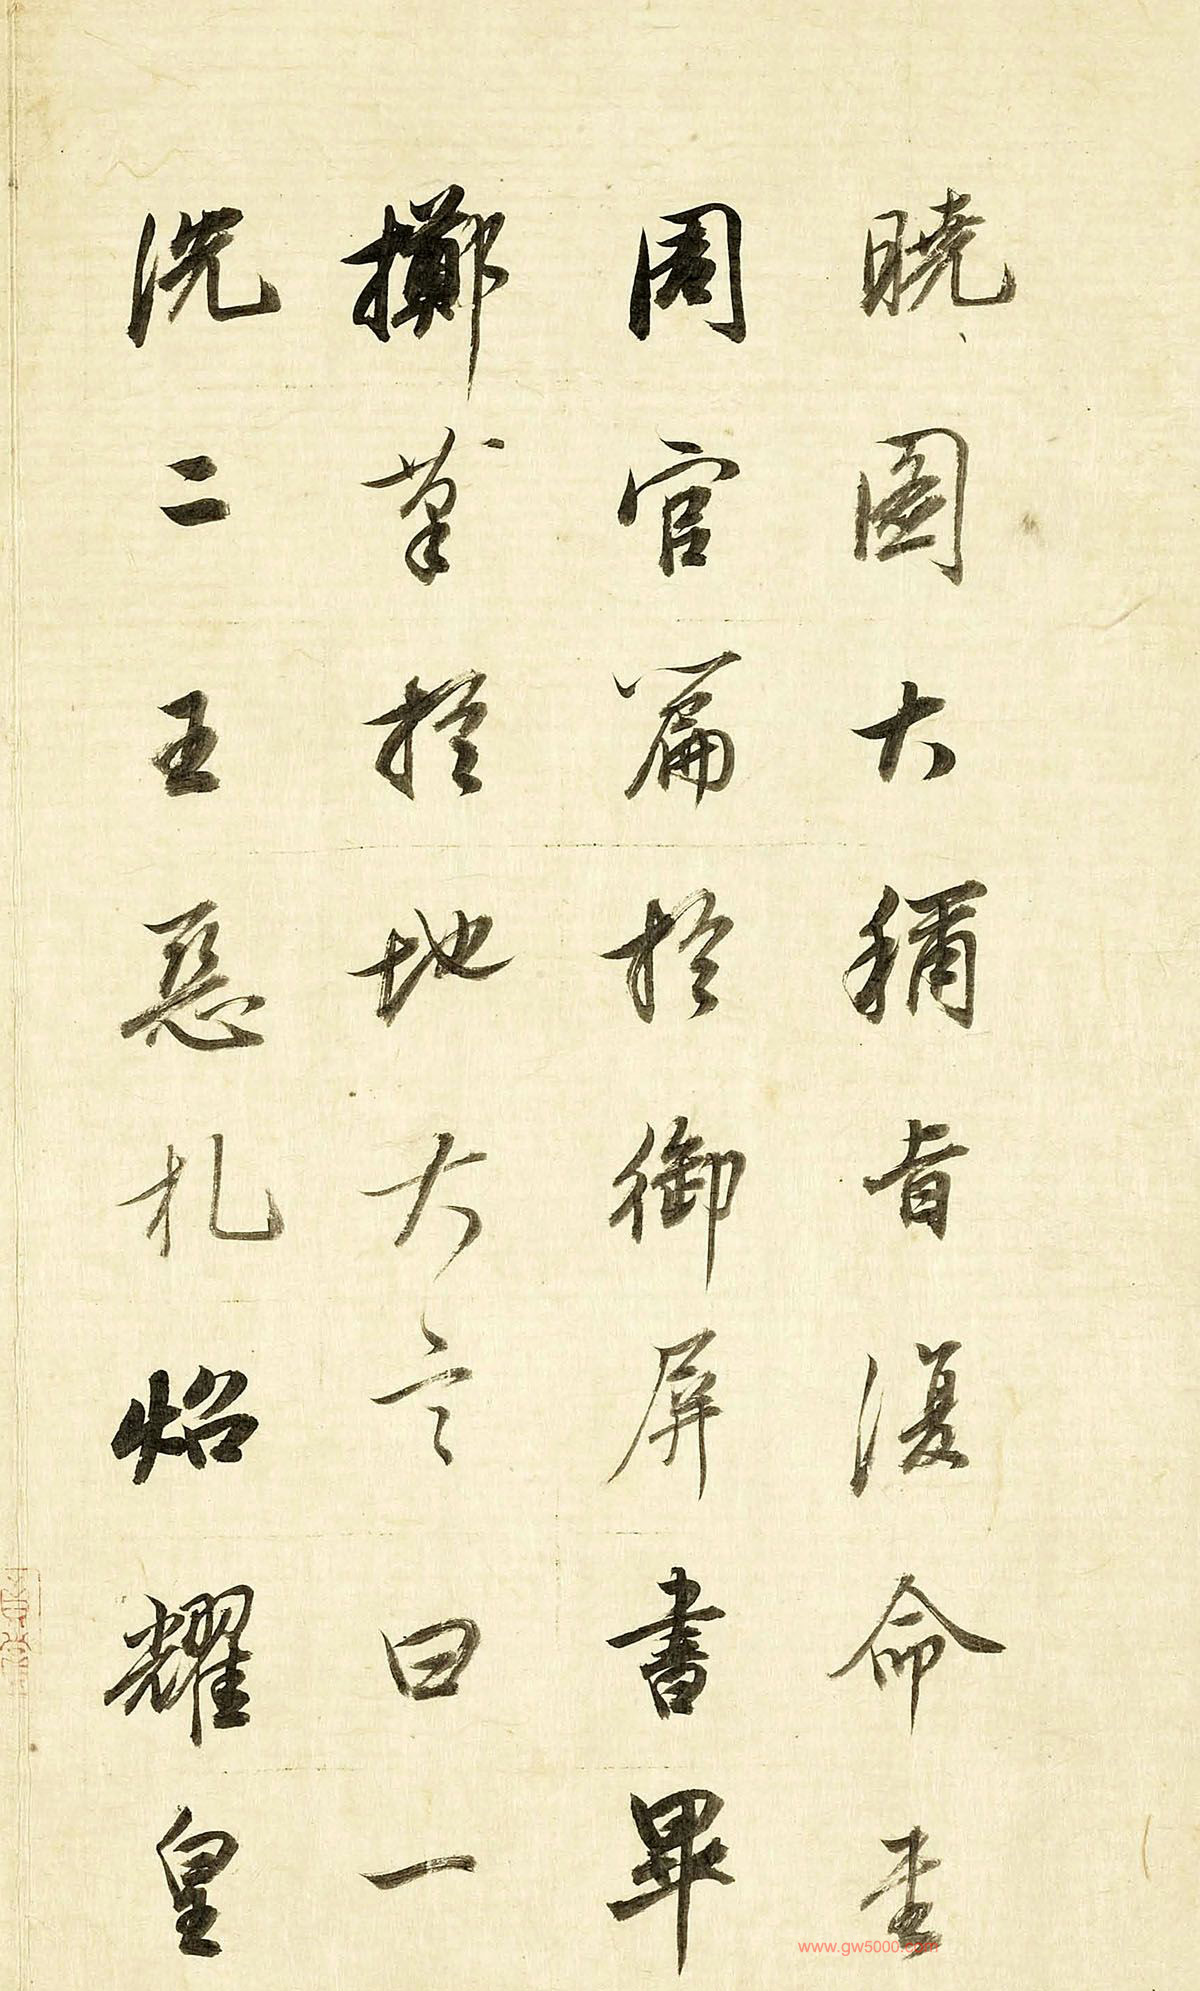 曉圖大稱旨復命書
周官篇於御屏書畢
擲筆於地大言曰一
洗二王惡札照耀皇
www.gw5000.com